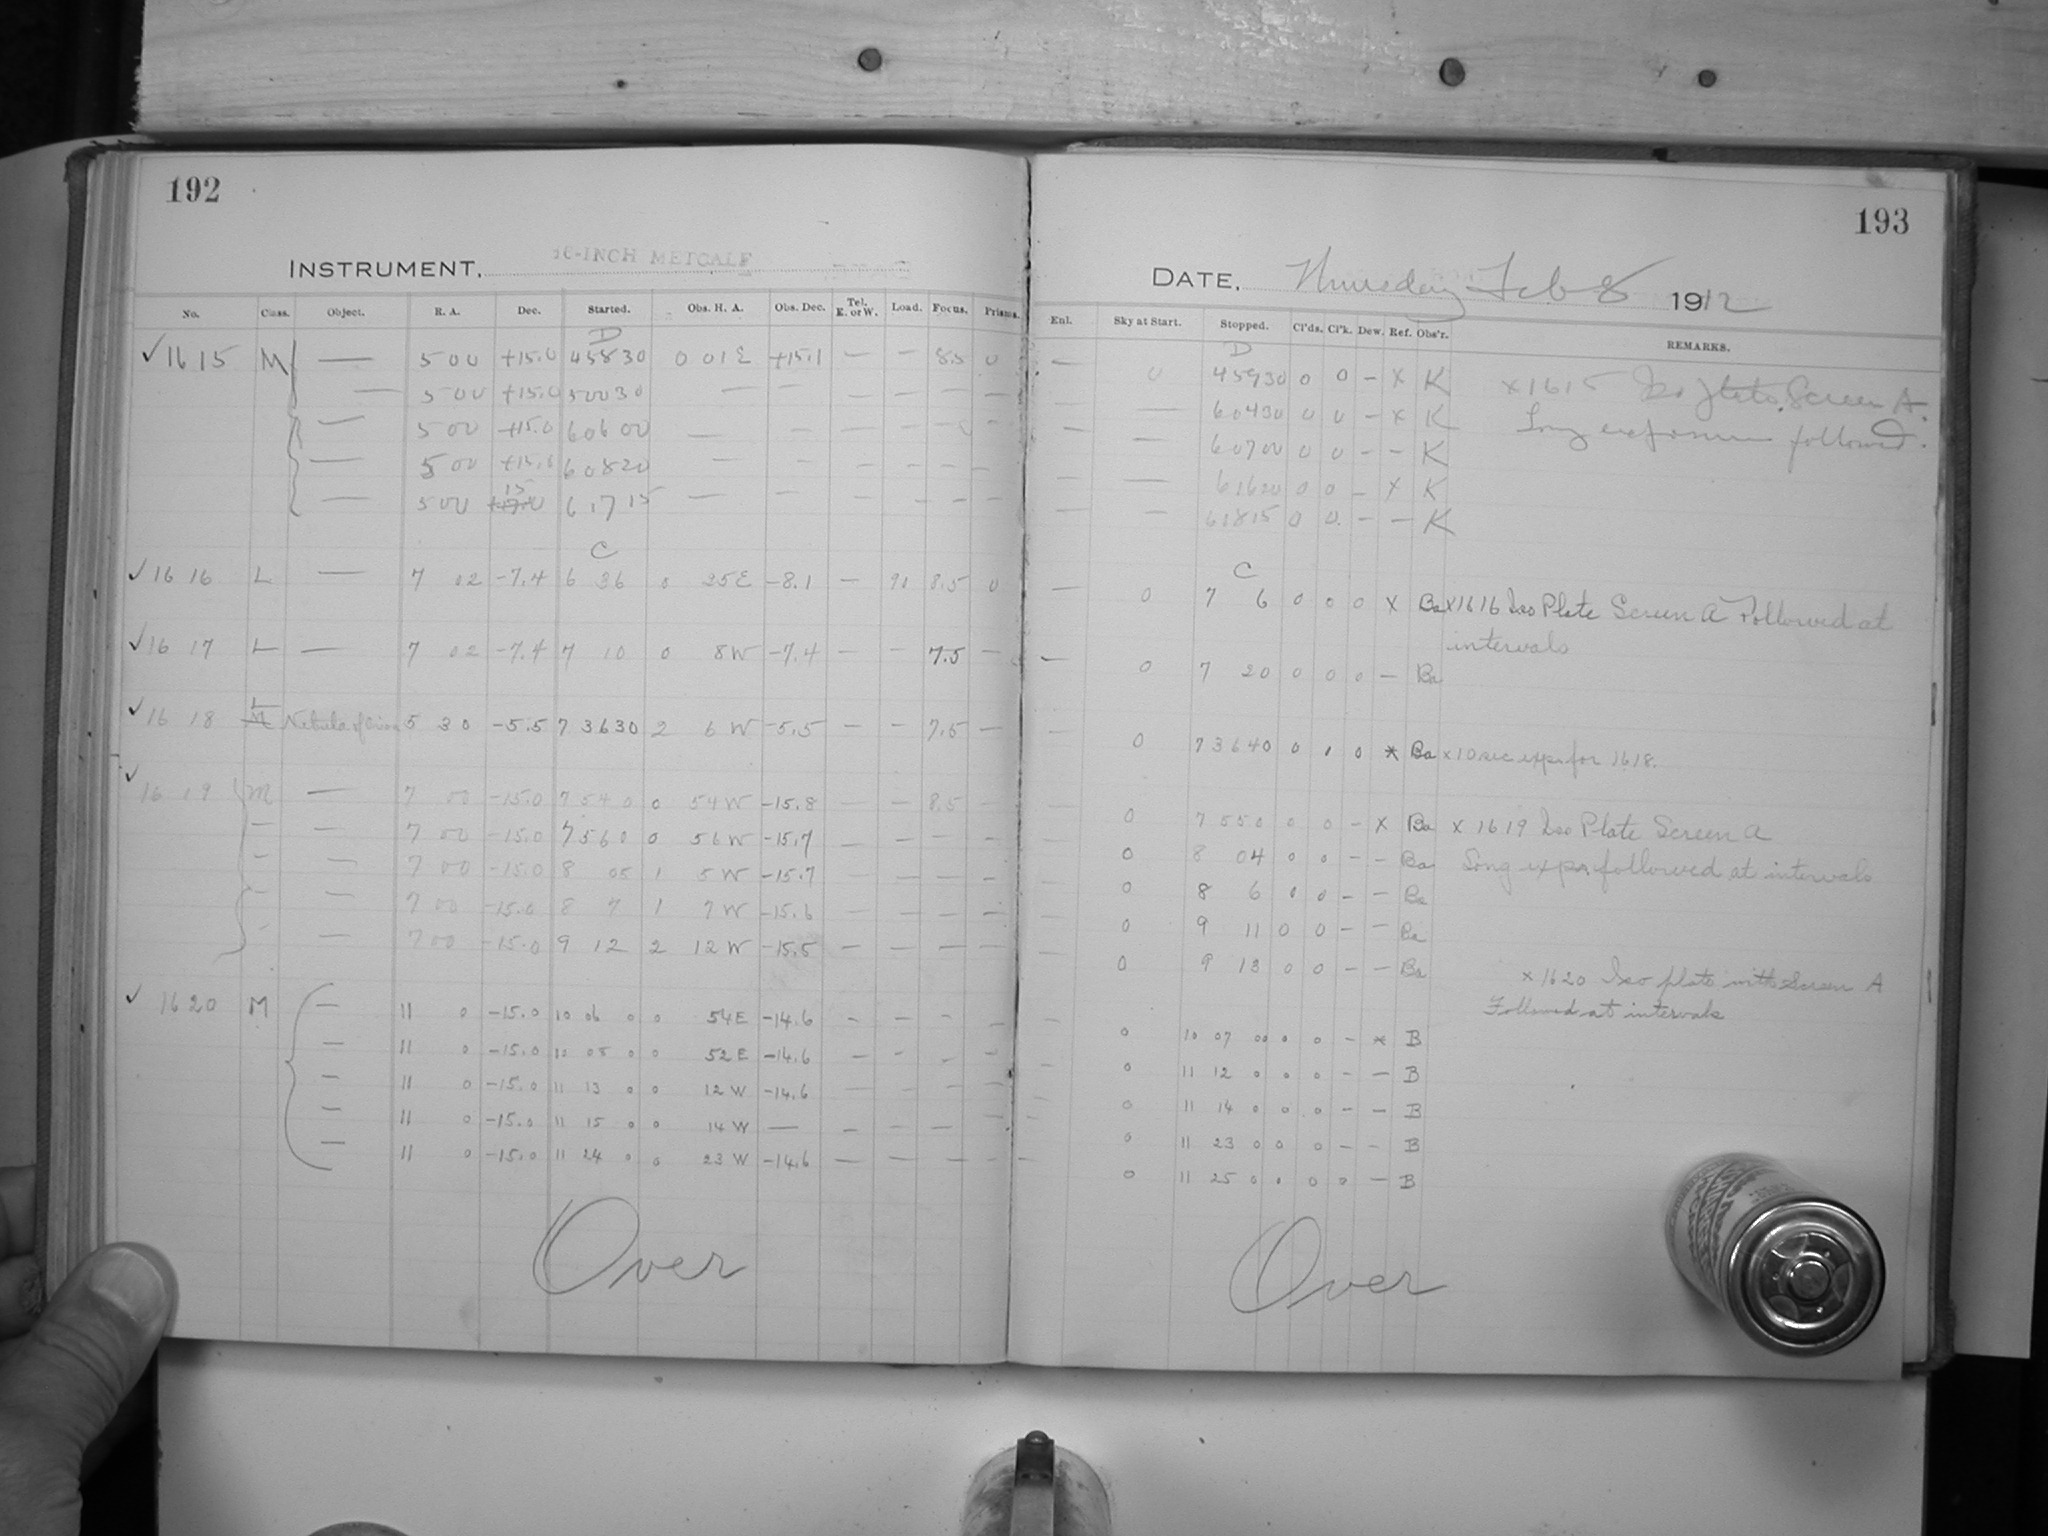 192
INSTRUMENT. 16-INCH METCALF
No. Class. Object. R. A. Dec. Started. Obs. H. A. Obs. Dec. Tel. E. or W. Load. Focus. Prisms.
D
✓1615 M — 5 00 +15.0 45830 0 01E +15.1 — — 8.5 0
— 5 00 +15.0 50030 — — — — — —
— 5 00 +15.0 60600 — — — — — —
— 5 00 +15.0 60820 — — — — — —
15
— 5 00 61715 — — — — — —
C
✓1616 L — 7 02 -7.4 6 36 0 25E -8.1 — 90 8.5 0
✓1617 L — 7 02 -7.4 7 10 0 8W -7.4 — — 7.5 —
L
✓1618 M Nebula of Orion 5 30 -5.5 7 3630 2 6W -5.5 — — 7.5 —
✓1619 M — 7 00 -15.0 7 54 0 0 54W -15.8 — — 8.5 —
— — 7 00 -15.0 7 56 0 0 56W -15.7 — — — —
— — 7 00 -15.0 8 05 1 5W -15.7 — — — —
— — 7 00 -15.0 8 7 1 7W -15.6 — — — —
— — 7 00 -15.0 9 12 2 12W -15.5 — — — —
✓1620 M — 11 0 -15.0 10 06 0 0 54E -14.6 — — — —
— 11 0 -15.0 10 08 0 0 52E -14.6 — — — —
— 11 0 -15.0 11 13 0 0 12W -14.6 — — — —
— 11 0 -15.0 11 15 0 0 14W — — — — —
— 11 0 -15.0 11 24 0 0 23W -14.6 — — — —
Over
193
DATE. Thursday Feb 8 1912
Enl. Sky at Start. Stopped. Cl'ds. Cl'k. Dew. Ref. Obs'r. REMARKS.
D
— 0 45930 0 0 — x K x1615 Iso plate. Screen A.
— — 60430 0 0 — x K Long exposure followed.
— — 60700 0 0 — — K
— — 61620 0 0 — x K
— — 61815 0 0 — — K
C
— 0 7 6 0 0 0 x Ba x1616 Iso Plate Screen A Followed at
intervals
— 0 7 20 0 0 0 — Ba
— 0 7 3640 0 1 0 x Ba x10 sec exp. for 1618.
— 0 7 55 0 0 0 — x Ba x 1619 Iso Plate Screen A
— 0 8 04 0 0 — — Ba Long exp. followed at intervals
— 0 8 6 0 0 — — Ba
— 0 9 11 0 0 — — Ba
— 0 9 13 0 0 — — Ba
x1620 Iso plate with Screen A
Followed at intervals
— 0 10 07 00 0 0 — x B
— 0 11 12 0 0 0 — — B
— 0 11 14 0 0 0 — — B
— 0 11 23 0 0 0 — — B
— 0 11 25 0 0 0 0 — B
Over